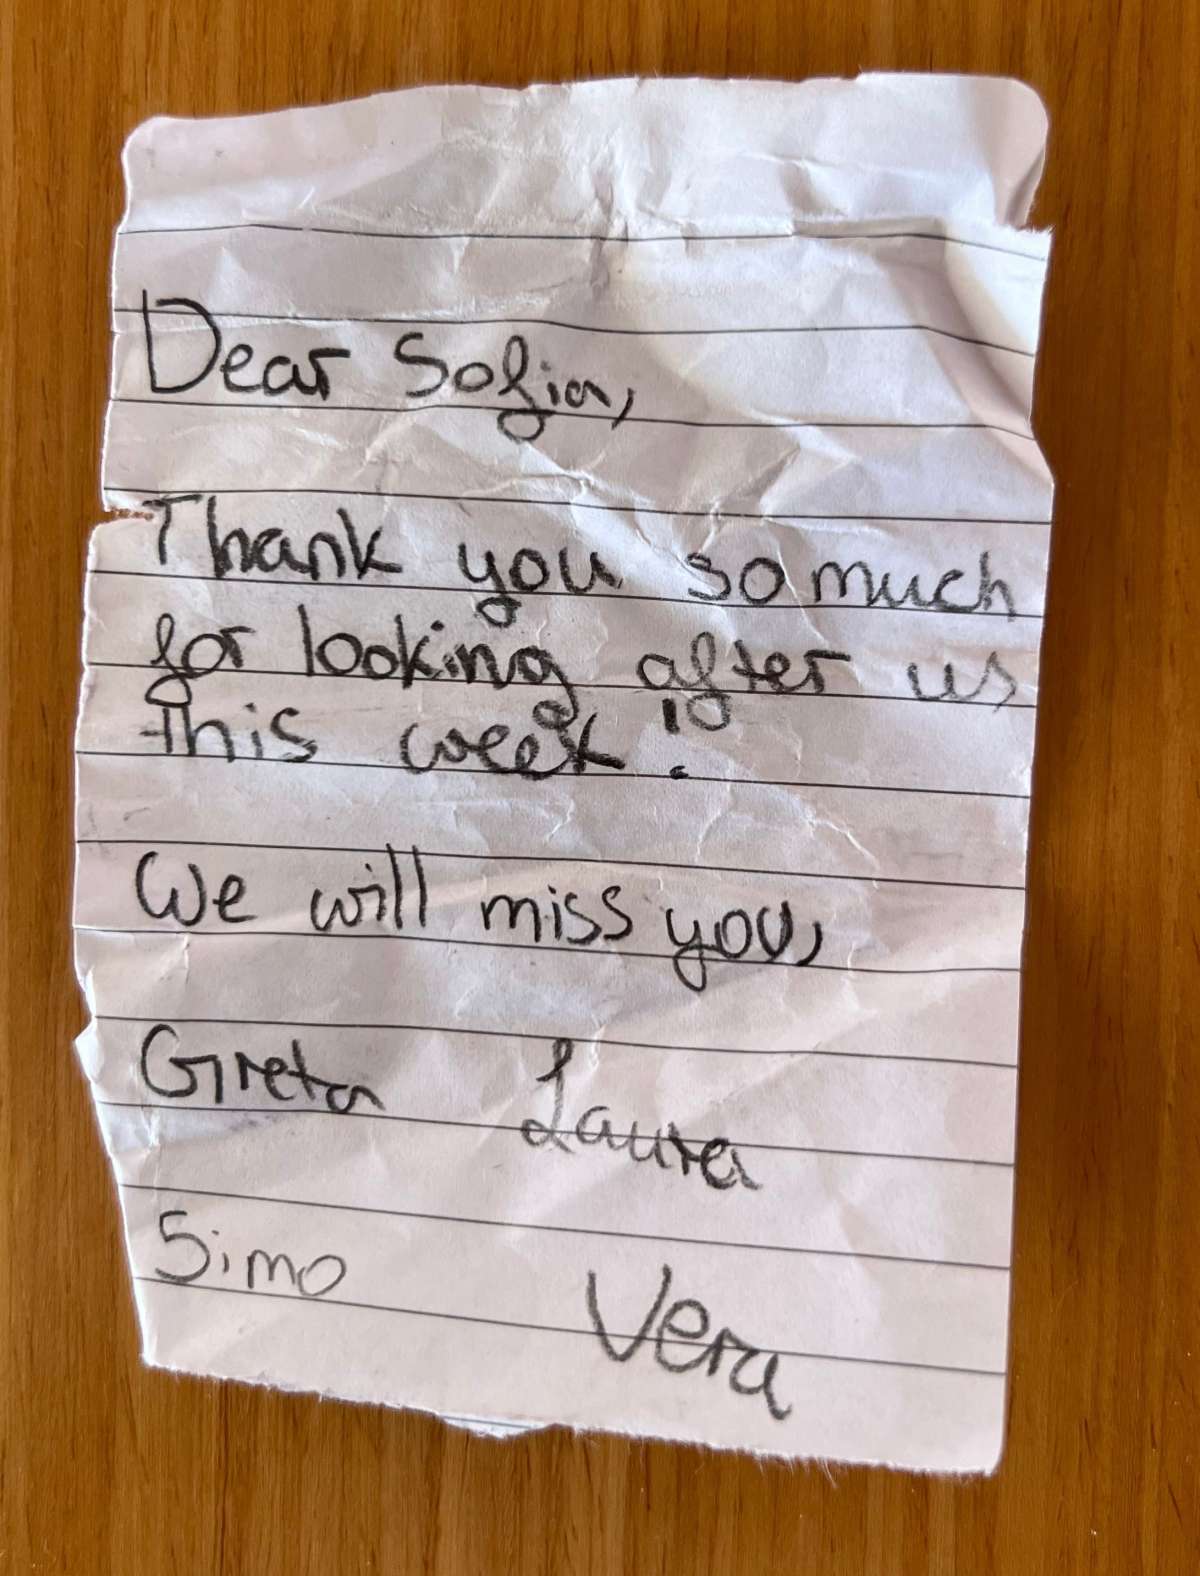 Dear Sofia,
Thank you so much
for looking after us
this week!
We will miss you,
Greta Laura
Simo Vera